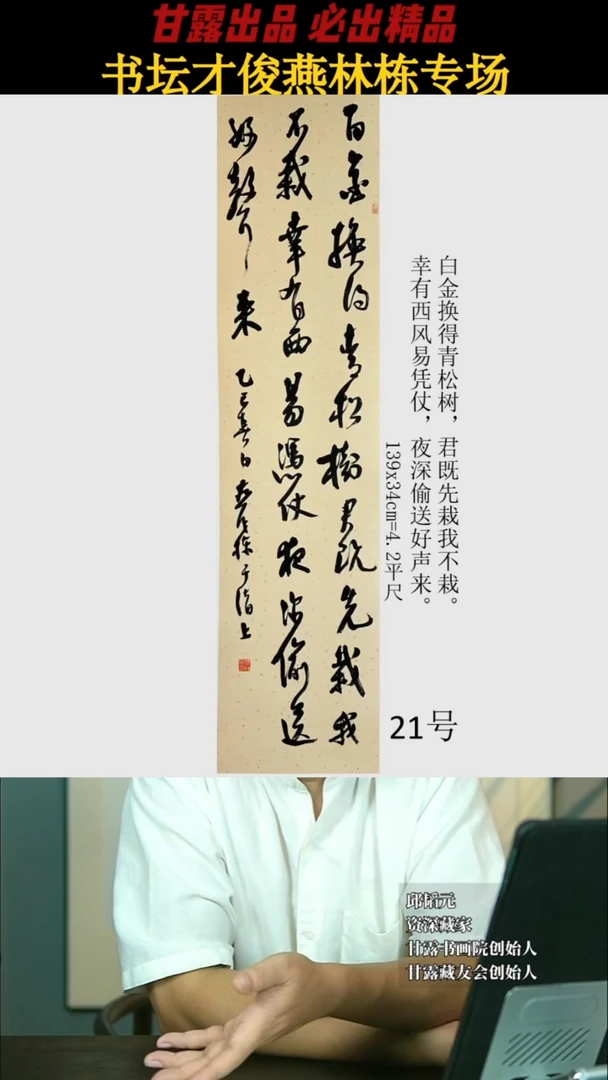 甘露出品 必出精品
书坛才俊燕林栋专场
百金換得青松樹君既先栽我
不栽幸有西易憑仗夜深偷送
好聲來
乙巳春日
白金换得青松树，君既先栽我不栽。
幸有西风易凭仗，夜深偷送好声来。
139x34cm=4.2平尺
21号
邱韬元
资深藏家
甘露书画院创始人
甘露藏友会创始人